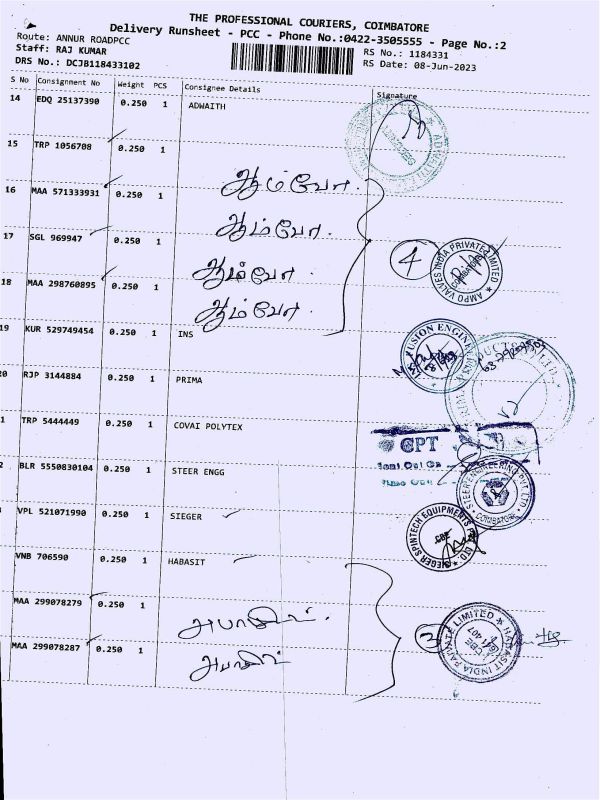 THE PROFESSIONAL COURIERS, COIMBATORE
Delivery Runsheet - PCC - Phone No.:0422-3505555 - Page No.:2
Route: ANNUR ROADPCC
RS No.: 1184331
Staff: RAJ KUMAR
RS Date: 08-Jun-2023
DRS No.: DCJB118433102
S No Consignment No Weight PCS Consignee Details Signature
14 EDQ 25137390 0.250 1 ADWAITH
15 TRP 1056708 0.250 1
16 MAA 571333931 0.250 1 ஆம்போ.
17 SGL 969947 0.250 1 ஆம்போ.
18 MAA 298760895 0.250 1 ஆம்போ.
ஆம்போ.
4
AMPO VALVES INDIA PRIVATE LIMITED
COIMBATORE
19 KUR 529749454 0.250 1 INS
FUSION ENGINE
20 RJP 3144884 0.250 1 PRIMA
1 TRP 5444449 0.250 1 COVAI POLYTEX
CPT
2 BLR 5550830104 0.250 1 STEER ENGG
STEER ENGINEERING PVT LTD
COIMBATORE
VPL 521071990 0.250 1 SIEGER
SIEGER SPINTECH EQUIPMENTS P LTD
VNB 706590 0.250 1 HABASIT
MAA 299078279 0.250 1 அபாசிட்.
MAA 299078287 0.250 1 அபாசிட்
HABASIT INDIA PRIVATE LIMITED
CBE
641 407